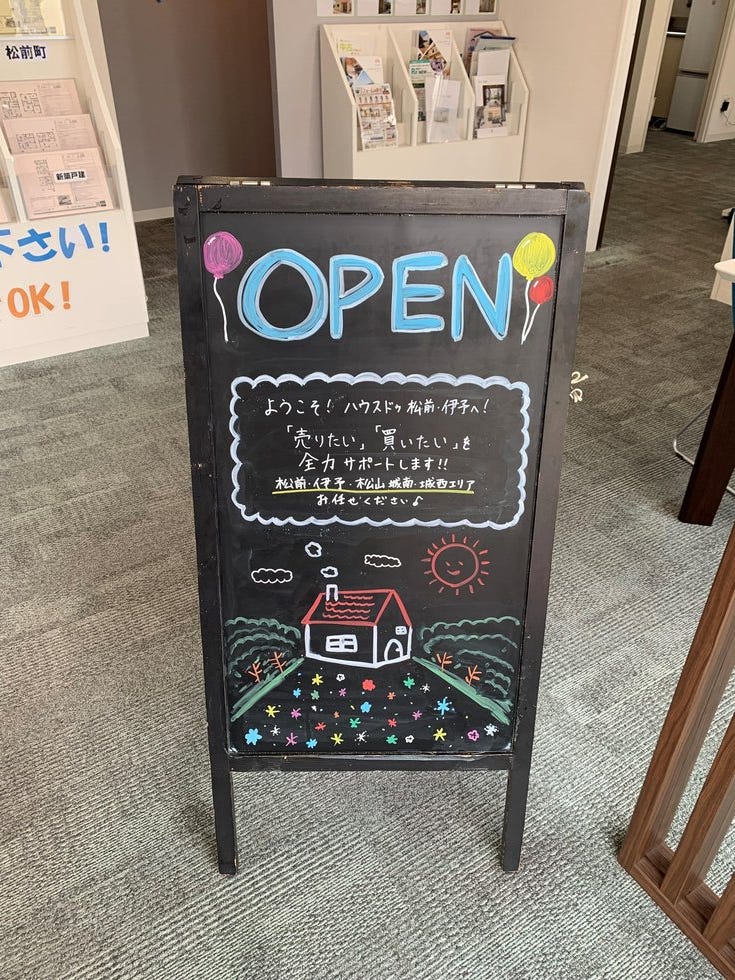 松前町
新築戸建
下さい!
OK!
OPEN
ようこそ! ハウスドゥ 松前・伊予へ!
「売りたい」「買いたい」を
全力サポートします!!
松前・伊予・松山城南・城西エリア
お任せください♪